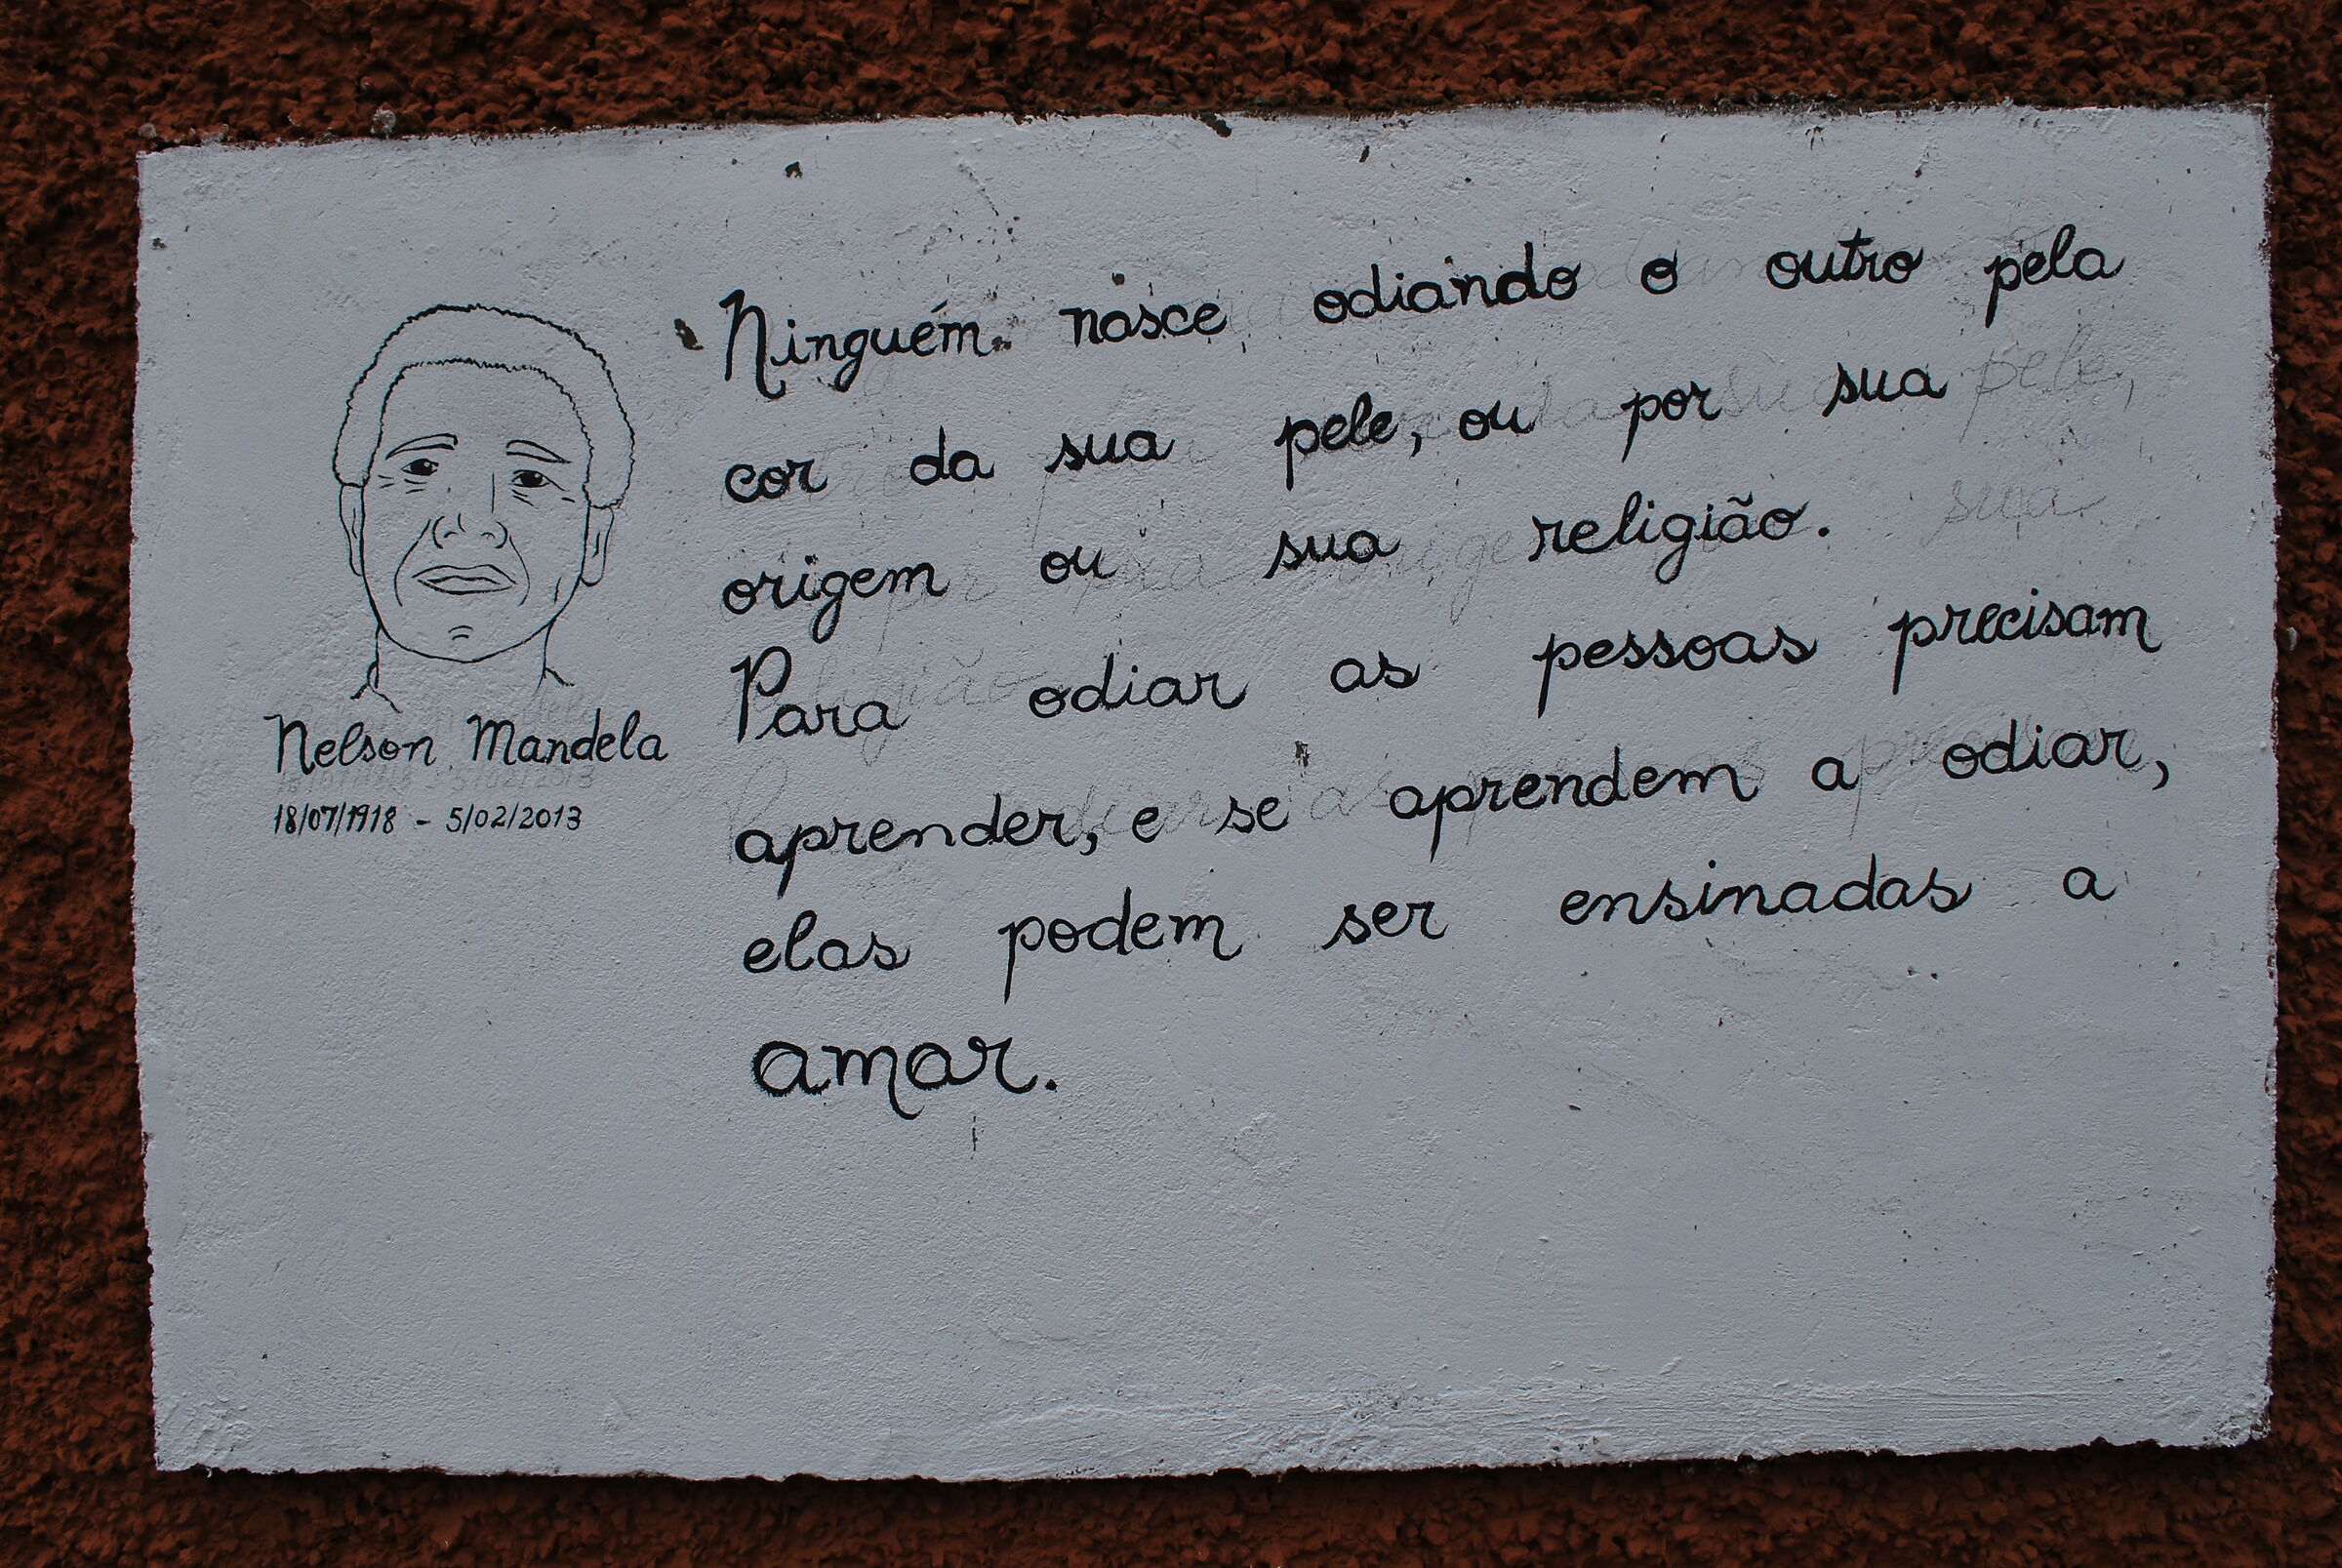 Ninguém nasce odiando o outro pela
cor da sua pele, ou por sua
origem ou sua religião.
Para odiar as pessoas precisam
aprender, e se aprendem a odiar,
elas podem ser ensinadas a
amar.
Nelson Mandela
18/07/1918 - 5/02/2013